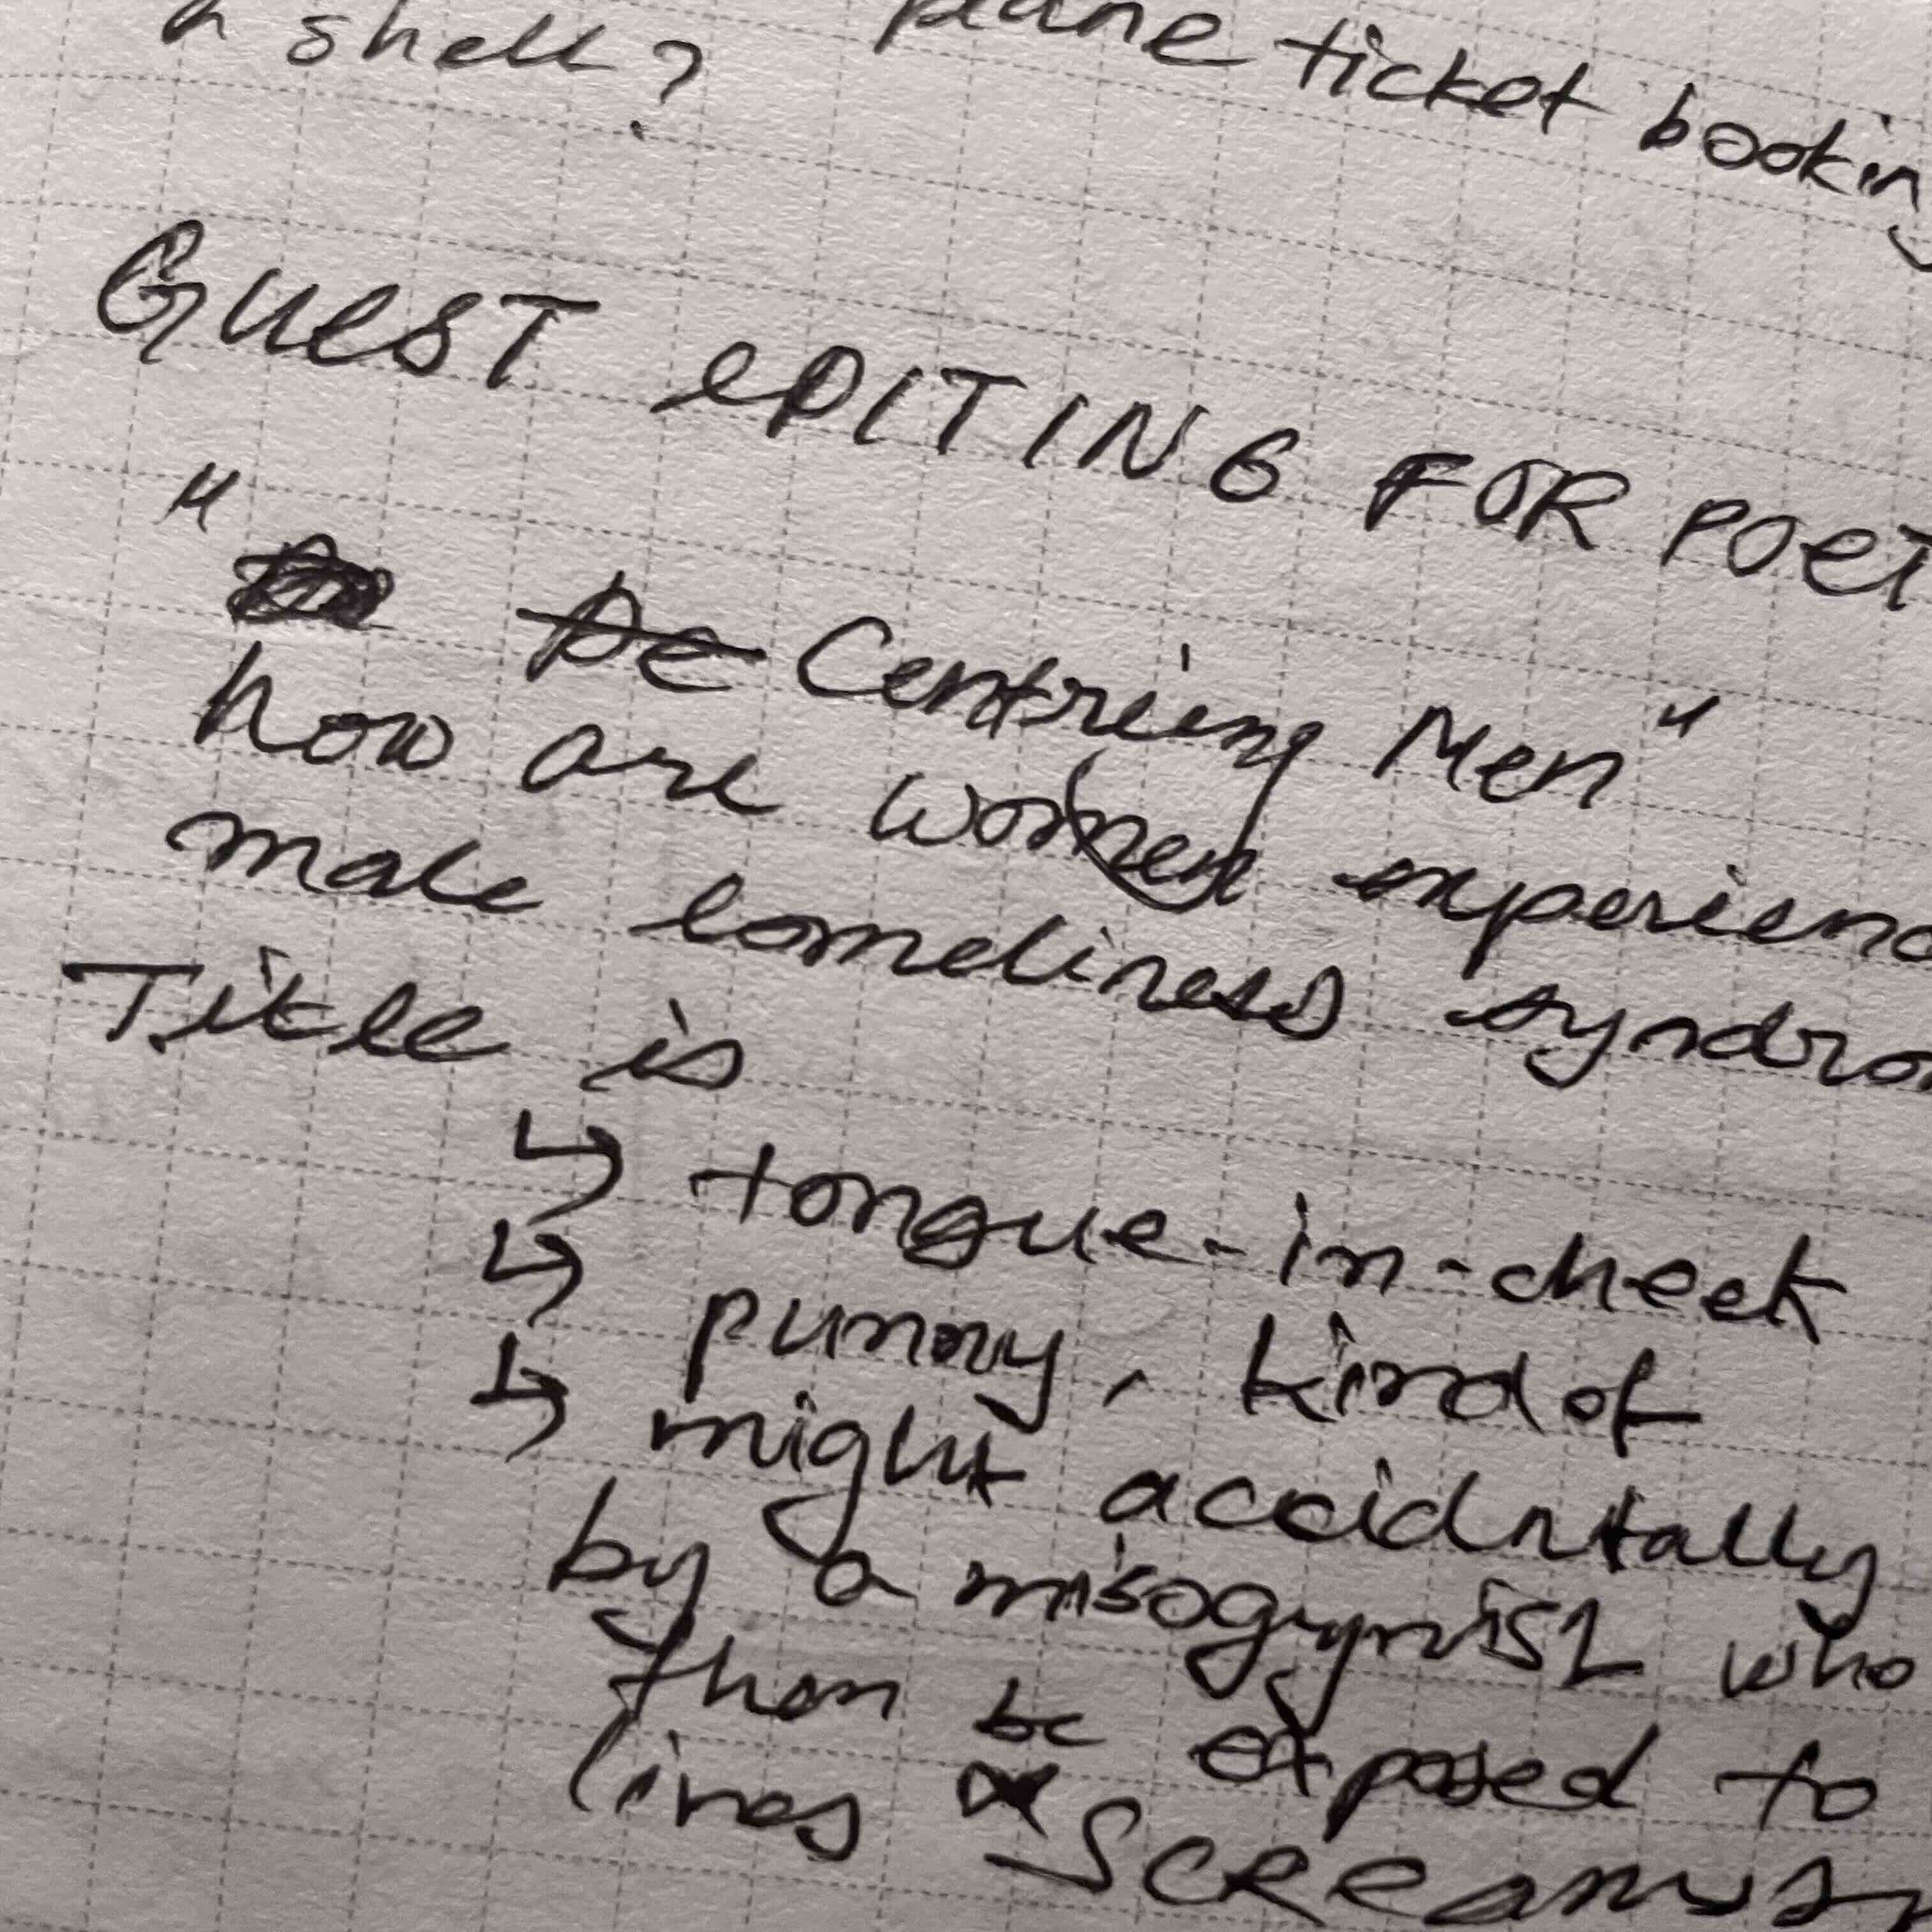 a shell? plane ticket booking
GUEST EDITING FOR POET
" De Centring Men"
how are women experienc
male loneliness syndro
Title is
↳ tongue-in-cheek
↳ punny, kind of
↳ might accidntally
by a misogynist who
then be exposed to
lines SCREAMS